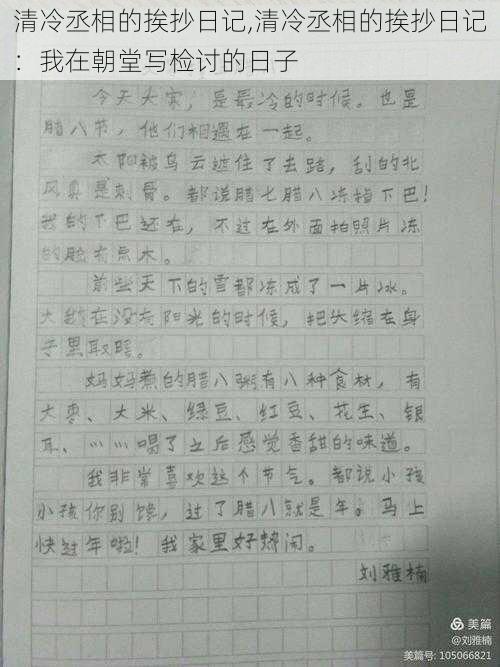 清冷丞相的挨抄日记,清冷丞相的挨抄日记
：我在朝堂写检讨的日子
今天大寒，是最冷的时候。也是
腊八节，他们相遇在一起。
太阳被乌云遮住了去路，刮的北
风真是刺骨。都说腊七腊八冻掉下巴！
我的下巴还在，不过在外面拍照片冻
的脸有点木。
前些天下的雪都冻成了一片冰。
大鹅在没有阳光的时候，把头缩在身
子里取暖。
妈妈煮的腊八粥有八种食材，有
大枣、大米、绿豆、红豆、花生、银
耳、……喝了之后感觉香甜的味道。
我非常喜欢这个节气。都说小孩
小孩你别馋，过了腊八就是年。马上
快过年啦！我家里好热闹。
刘雅楠
美篇
@刘雅楠
美篇号：105066821